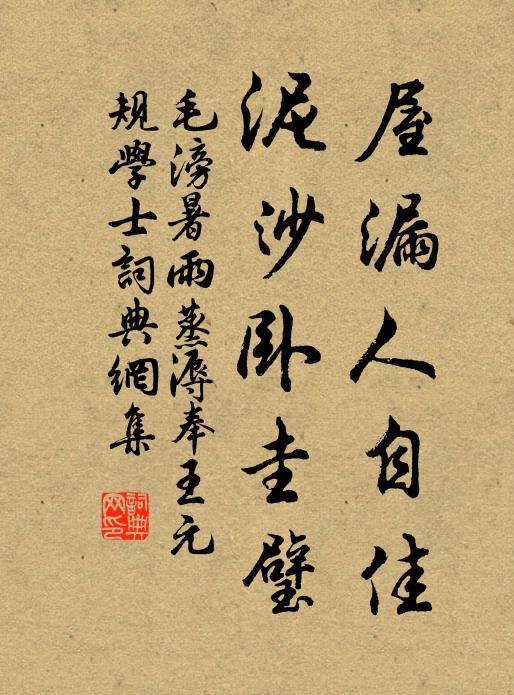 屋漏人自佳
泥沙臥圭璧
毛滂暑雨蒸溽奉王元
規學士詞典網集
詞典網印